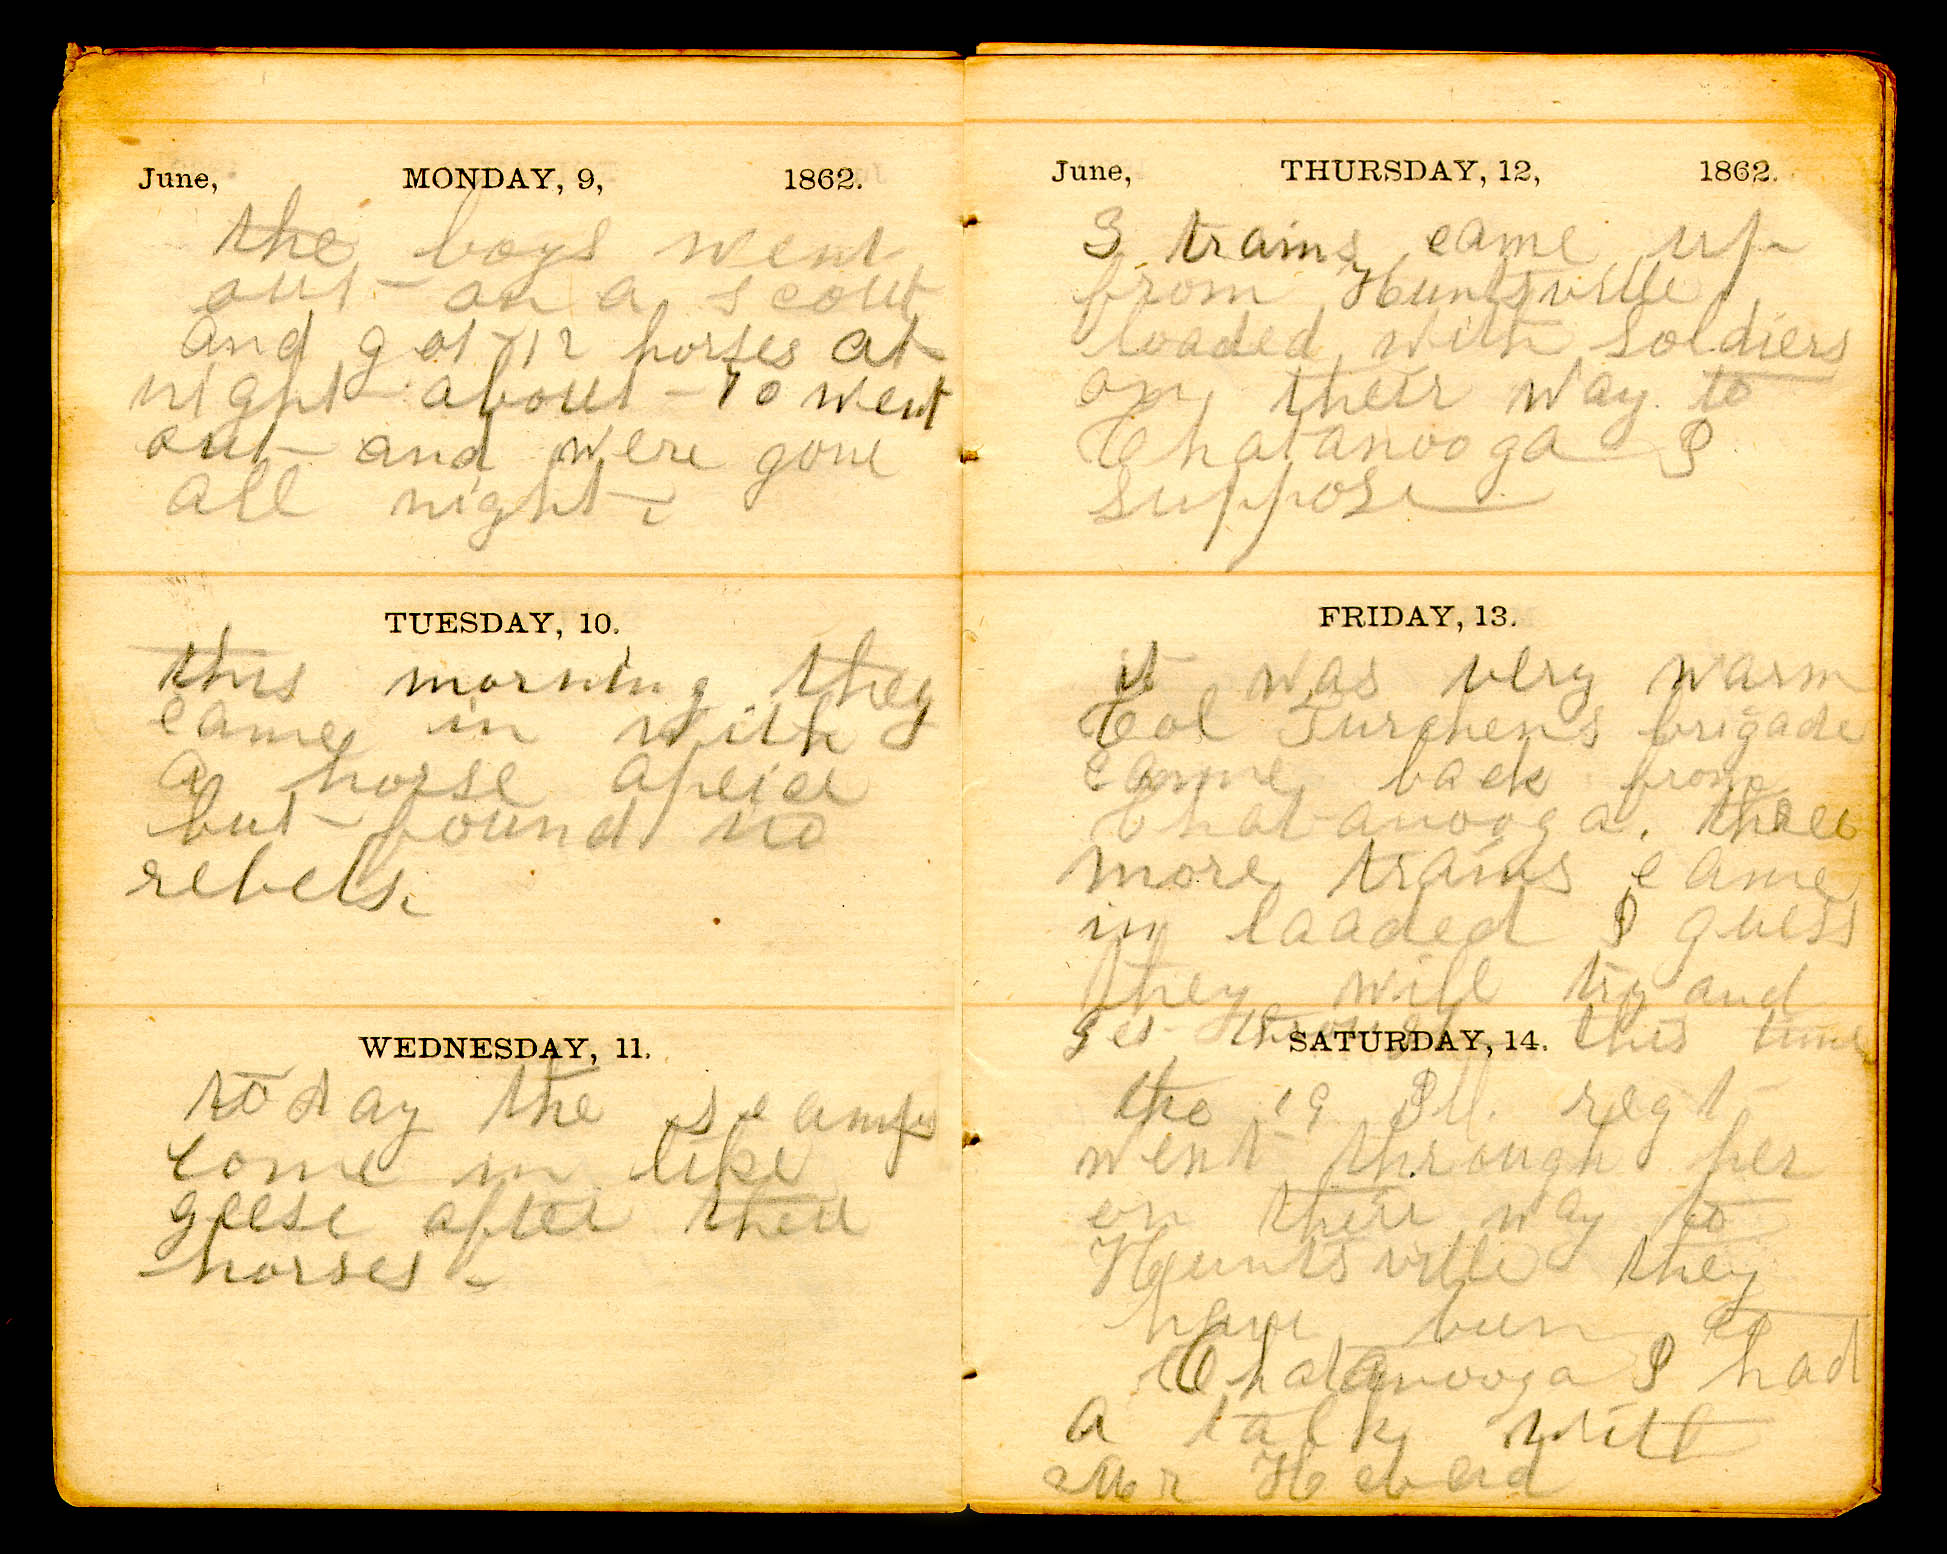 June, MONDAY, 9, 1862.
the boys went
out on a scout
and got 12 horses at
night about 70 went
out and were gone
all night.
TUESDAY, 10.
this morning they
came in with
a horse apeice
but found no
rebels.
WEDNESDAY, 11.
to day the scamps
come in like
geese after their
horses.
June, THURSDAY, 12, 1862.
3 trains came up
from Huntsville
loaded with soldiers
on their way to
Chatanooga I
suppose
FRIDAY, 13.
it was very warm
Col Turchens brigade
came back from
Chatanooga. three
more trains came
in loaded I guess
they will try and
get through this time
SATURDAY, 14.
the 19 Ill. regt
went through her
on their way to
Huntsville they
have bun to
Chatanooga I had
a talk with
Mr Heberd